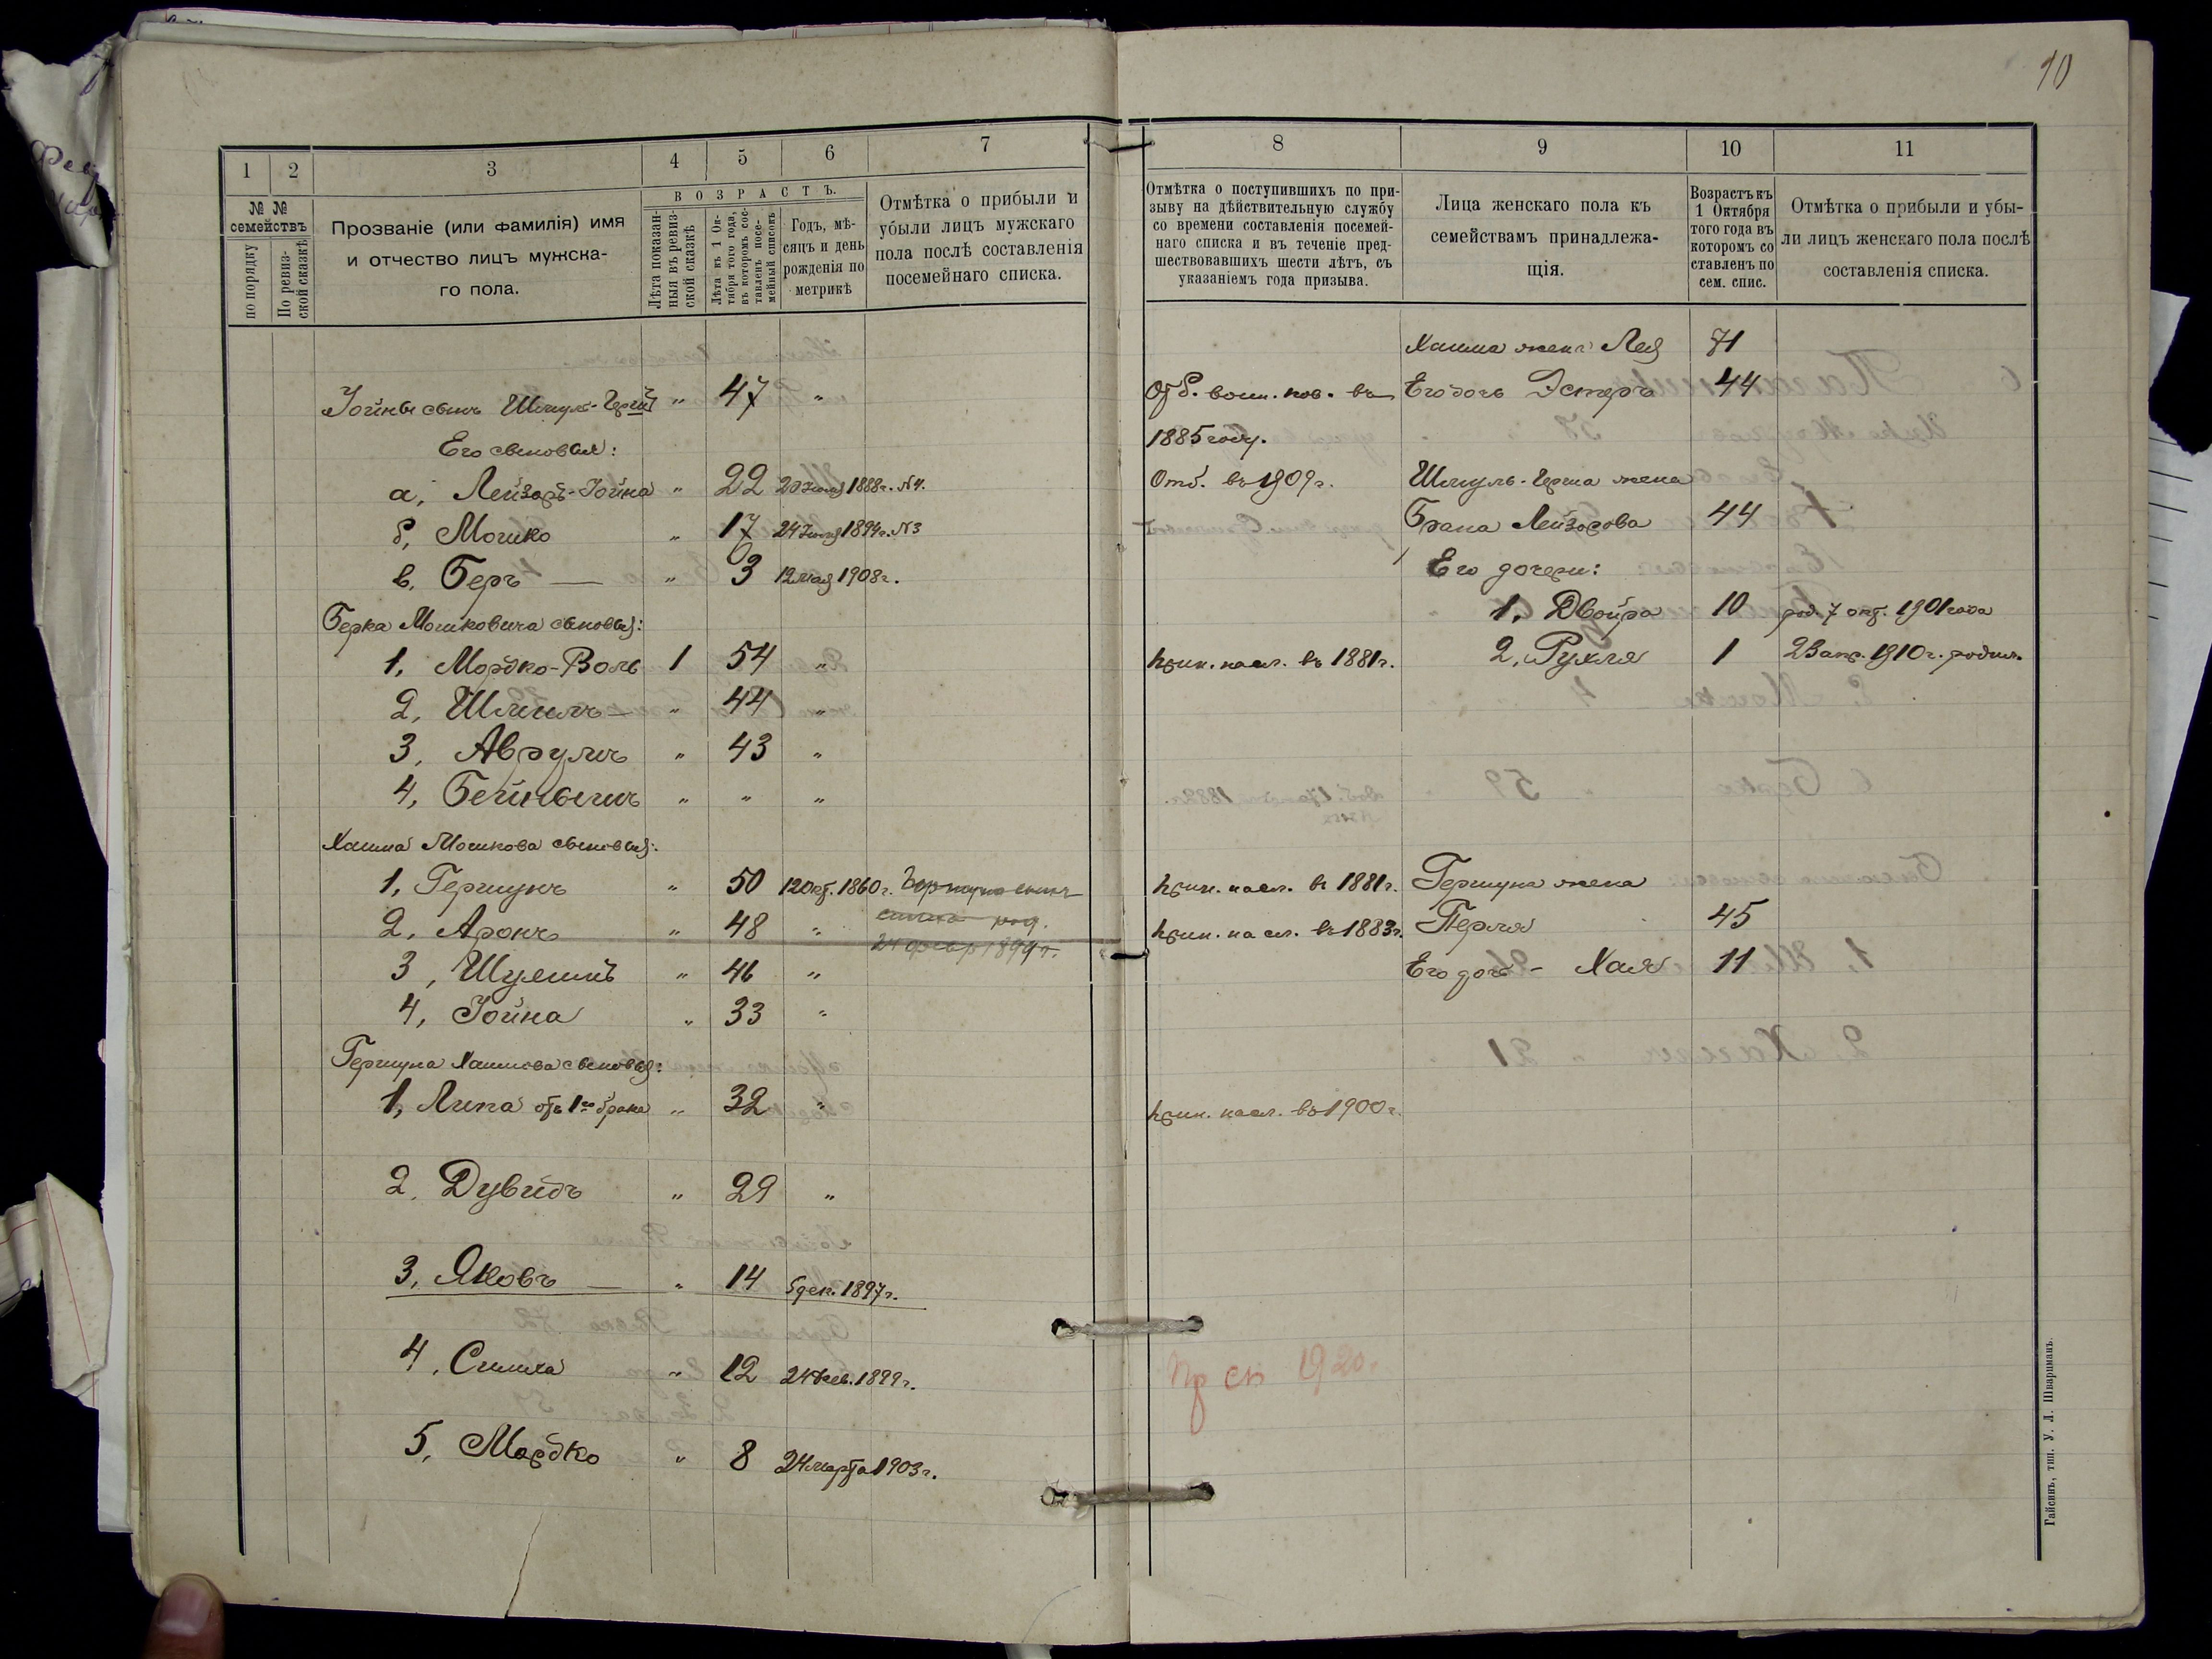 10
1 2 3 4 5 6 7
№ №
семействъ
по порядку
По ревиз-
ской сказкѣ
Прозваніе (или фамилія) имя
и отчество лицъ мужска-
го пола.
ВОЗРАСТЪ.
Лѣта показан-
ныя въ ревиз-
ской сказкѣ
Лѣта къ 1 Ок-
тября того года,
въ которомъ сос-
тавленъ посе-
мейный списокъ
Годъ, мѣ-
сяцъ и день
рожденія по
метрикѣ
Отмѣтка о прибыли и
убыли лицъ мужскаго
пола послѣ составленія
посемейнаго списка.
Іойны сынъ Шмуль-Герш " 47 "
Его сыновья:
а, Лейзоръ-Іойна " 22 20 1888г. №4.
б, Мошко " 17 24 1894г. №3
в. Беръ — " 3 12 мая 1908г.
Берка Мошковича сыновья:
1, Мордко-Воль 1 54 "
2, Шлиомъ — " 44 "
3, Аврумъ " 43 "
4, Бейнышъ " " "
Хаима Мошкова сыновья:
1, Гершунъ " 50 12 окт. 1860г. Гершуна сынъ
2, Аронъ " 48 " род.
24 февр 1899г.
3, Шулимъ " 46 "
4, Іойна " 33 "
Гершуна Хаимова сыновья:
1, Липа отъ 1го брака " 32 "
2. Дувидъ " 29 "
3, Яковъ — " 14 5 дек. 1897г.
4, Симха " 12 24 фев. 1899г.
5, Мордко " 8 24 марта 1903г.
8 9 10 11
Отмѣтка о поступившихъ по при-
зыву на дѣйствительную службу
со времени составленія посемей-
наго списка и въ теченіе пред-
шествовавшихъ шести лѣтъ, съ
указаніемъ года призыва.
Лица женскаго пола къ
семействамъ принадлежа-
щія.
Возрастъ къ
1 Октября
того года въ
которомъ со
ставленъ по
сем. спис.
Отмѣтка о прибыли и убы-
ли лицъ женскаго пола послѣ
составленія списка.
Хаима жена Лея 71
Отб. воин. пов. въ Его дочь Эстеръ 44
1885 году.
Отб. въ 1909г. Шмуль-Герша жена
Брана Лейзорова 44
Его дочери:
1, Двойра 10 род. 7 окт. 1901 года
прин. на сл. въ 1881г. 2, Рухля 1 23 апр. 1910г. родил.
прин. на сл. въ 1881г. Гершуна жена
прин. на сл. въ 1883г. Перля 45
Его дочь - Хая 11
прин. на сл. въ 1900г.
пр сп 1920.
Гайсинъ, тип. У. Л. Шварцманъ.